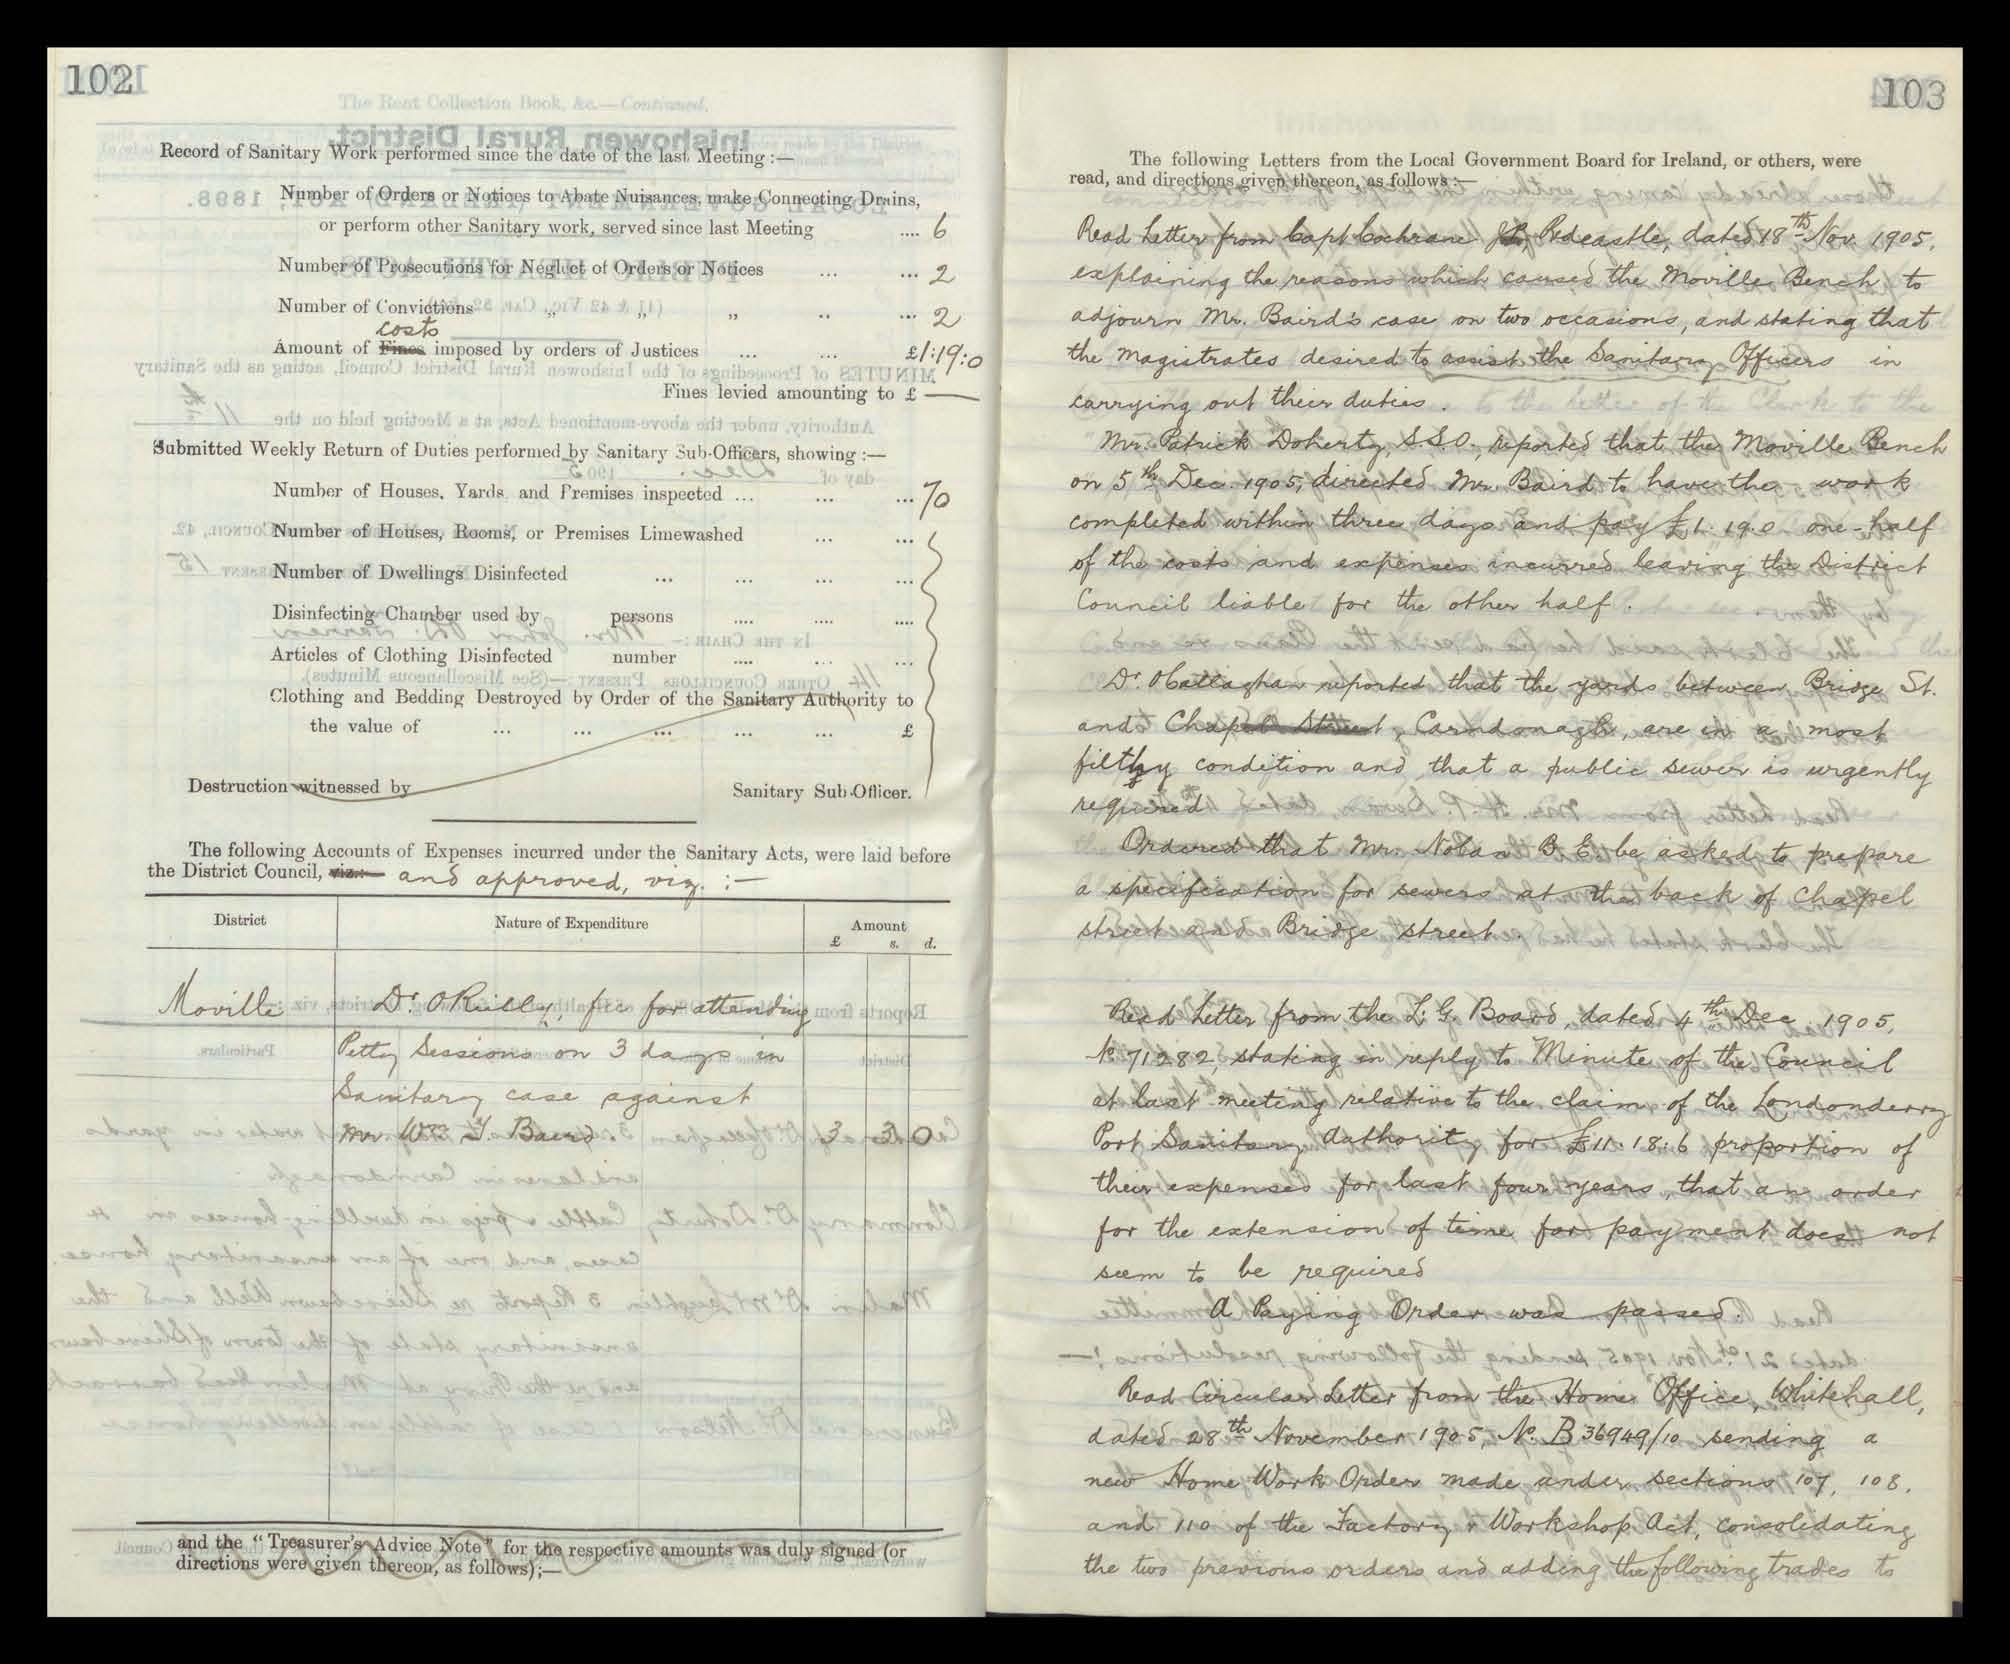 102
Record of Sanitary Work performed since the date of the last Meeting :—
Number of Orders or Notices to Abate Nuisances, make Connecting Drains,
or perform other Sanitary work, served since last Meeting .... 6
Number of Prosecutions for Neglect of Orders or Notices ... ... 2
Number of Convictions „ „ „ .. ... 2
costs
Amount of Fines imposed by orders of Justices ... ... £1:19:0
Fines levied amounting to £ —
Submitted Weekly Return of Duties performed by Sanitary Sub-Officers, showing :—
Number of Houses, Yards and Premises inspected ... ... ... 70
Number of Houses, Rooms, or Premises Limewashed ... ...
Number of Dwellings Disinfected ... ... ... ...
Disinfecting Chamber used by persons .... .... ....
Articles of Clothing Disinfected number .... ... ...
Clothing and Bedding Destroyed by Order of the Sanitary Authority to
the value of ... ... ... ... ... £
Destruction witnessed by Sanitary Sub-Officer.
The following Accounts of Expenses incurred under the Sanitary Acts, were laid before
the District Council, viz.:— and approved, viz. :—
District Nature of Expenditure Amount
£ s. d.
Moville Dr. O'Reilly, fee for attending
Petty Sessions on 3 days in
Sanitary case against
Mr. Wm. T. Baird. 3 3 0
and the "Treasurer's Advice Note" for the respective amounts was duly signed (or
directions were given thereon, as follows);—
103
The following Letters from the Local Government Board for Ireland, or others, were
read, and directions given thereon, as follows :—
Read Letter from Capt Cochrane J.P., Redcastle, dated 18th Nov 1905,
explaining the reasons which caused the Moville Bench to
adjourn Mr. Baird's case on two occasions, and stating that
the magistrates desired to assist the Sanitary Officers in
carrying out their duties.
Mr. Patrick Doherty, S.S.O., reported that the Moville Bench
on 5th Dec. 1905, directed Mr. Baird to have the work
completed within three days and pay £1.19.0 one-half
of the costs and expenses incurred leaving the District
Council liable for the other half.
Dr. O'Callaghan reported that the yards between Bridge St.
and Chapel Street, Carndonagh, are in a most
filthy condition and that a public sewer is urgently
required
Ordered that Mr. Nolan B.E. be asked to prepare
a specification for sewers at the back of Chapel
street and Bridge street.
Read Letter from the L. G. Board, dated 4th Dec. 1905,
No 71282, stating in reply to Minute of the Council
at last meeting relative to the claim of the Londonderry
Port Sanitary Authority for £11.18:6 proportion of
their expenses for last four years, that an order
for the extension of time for payment does not
seem to be required
A Paying Order was passed.
Read Circular Letter from the Home Office, Whitehall,
dated 28th November 1905, No. B 36949/10 sending a
new Home Work Order made under sections 107, 108,
and 110 of the Factory & Workshop Act, consolidating
the two previous orders and adding the following trades to